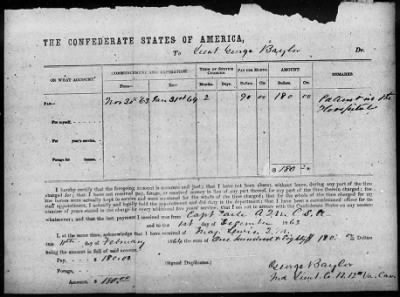 THE CONFEDERATE STATES OF AMERICA,
To Lieut George Baylor Dr.
ON WHAT ACCOUNT.
COMMENCEMENT AND EXPIRATION.
TERM OF SERVICE CHARGED.
PAY PER MONTH.
AMOUNT.
REMARKS.
From To Months. Days. Dollars. Cts. Dollars. Cts.
PAY—
Nov 30th 63 Jan 31st 64 2 90 00 180 00
Patient in the Hospital
For myself,
For years' service,
Forage for horses
$ 180
I hereby certify that the foregoing account is accurate and just; that I have not been absent, without leave, during any part of the time
charged for; that I have not received pay, forage, or received money in lieu of any part thereof, for any part of the time therein charged; that
the horses were actually kept in service and were mustered for the whole of the time charged; that for the whole of the time charged for my
staff appointment, I actually and legally held the appointment and did duty in the department; that I have been a commissioned officer for the
number of years stated in the charge for every additional five years' service; that I am not in arrears with the Confederate States on any account
whatsoever; and that the last payment I received was from Capt A.Q.M. C.S.A.
and to the 1st day of December 1863
I, at the same time, acknowledge that I have received of Maj. Lewis Q.M.
this 10th day of February 1864 the sum of One hundred & Eighty 180 Dollars
being the amount in full of said account.
Pay, - - $ 180.00
Forage, - -
Amount, - $ 180.00
(Signed Duplicates.)
George Baylor
2nd Lieut Co. B. 12th Va. Cav.